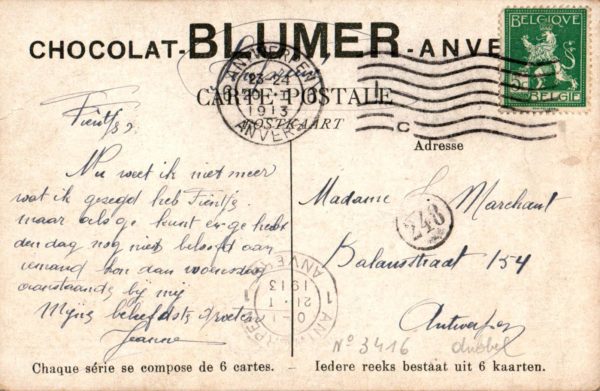 CHOCOLAT-BLUMER-ANVE
CARTE POSTALE
POSTKAART
ANTWERPEN
23-24
20 · I
1913
ANVERS
BELGIQUE
5 5
BELGIË
C
Adresse
Nu weet ik niet meer
wat ik gezegd heb Fientje
maar als ge kunt en ge hebt
den dag nog niet beloofd aan
iemand kom dan woensdag
aanstaande bij mij
Mijne beleefdste groeten
Jeanne
Madame Marchant
248
Balansstraat 154
Antwerpen
1 ANTWERPEN 1
ANVERS
21 · I
1913
N° 3416 dubbel
Chaque série se compose de 6 cartes. - Iedere reeks bestaat uit 6 kaarten.